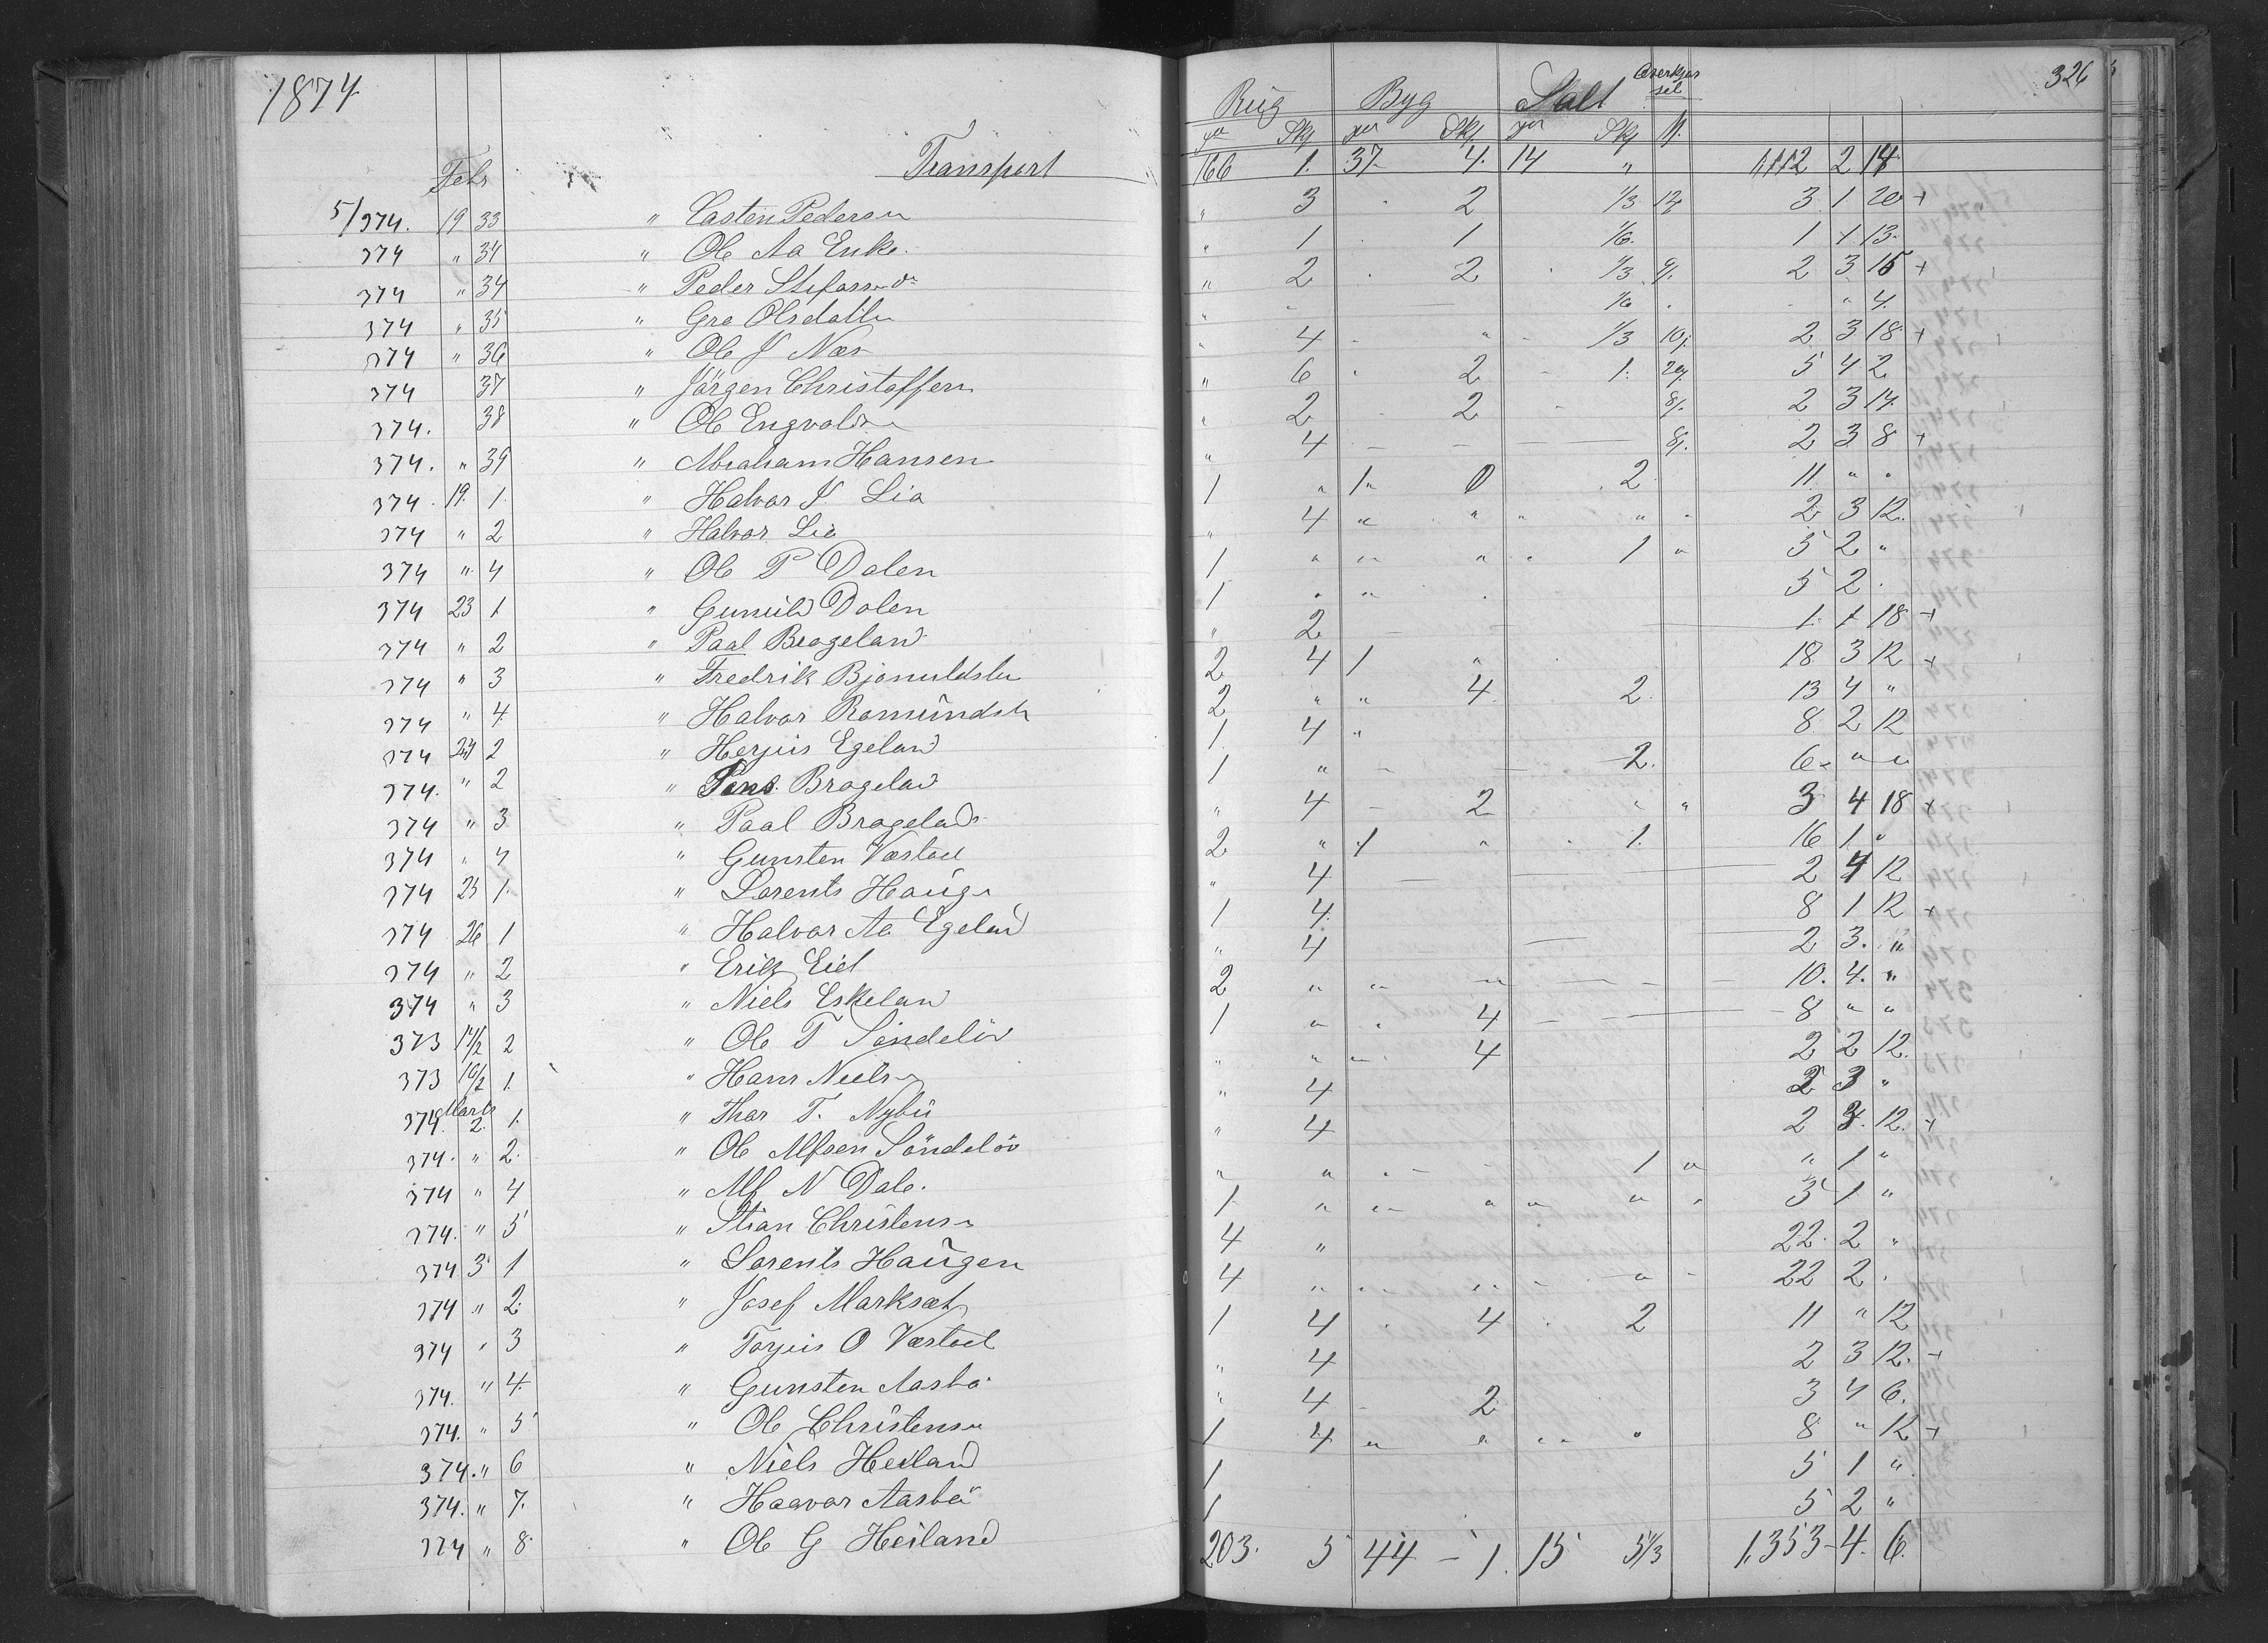 1874
326
Rug Byg Salt
Skj. Skj. Skj.
Febr Transport 166 1. 37 4. 14 " 1,112 2 14
5/374. 19 33 " Casten Pedersen " 3 2 1/3 12 3 1 20 +
374 " 34 " Ole Aa " 1 1 1/6 1 1 13
374 " 34 " Peder " 2 2 1/3 9 2 3 15 +
374 " 35 " Gro Olsdatter " 1/6 " 4
374 " 36 " Ole J Næs 4 " 1/3 10 2 3 18 +
374 37 " Jörgen Christoffersen " 6 2 1 5 4 2
374. 38 " Ole Engvoldsen " 2 2 8 2 3 14
374. " 39 " Abraham Hansen " 4 8 2 3 8 +
374. 19. 1. " Halvor J Lia 1 " 1 0 2 11 " "
374 " 2 " Halvor Lia " 4 " " " " 2 3 12.
374 " 4 " Ole P Dalen 1 " " " " 1 " 5 2 "
374 23 1 " Gunuld Dolen 1 " 5 2
374 " 2 " Paal Brageland " 2 1 1 18 +
374 " 3 " Fredrik 2 4 1 " 18 3 12 +
374 " 4 " Halvor Romundst 2 " " 4 2 13 4 "
374 24 2 " Herjus Egeland 1 4 " 8 2 12
374. " 2 " Brageland 1 " 2. 6 " "
374 " 3 " Paal Brageland " 4 2 " 3 4 18 +
374 " 4 " Gunsten Værstad 2 " 1 " 1. 16 1 "
374 25 1. " Lorents Haugen " 4 2 4 12
374 26 1 " Halvor Aa Egeland 1 4 8 1 12 +
374 " 2 " Erik Eiet " 4 2 3. "
374 " 3 " Niels Eskeland 2 " " 10. 4. "
373 14/2 2 " Ole T Söndelöv 1 " 4 8 " "
373 16/2 1. " Hans Nielsen " " " 4 2 2 12.
374. Marts 2. 1. " Thor T. Nybu " 4 2 3 "
374. " 2. " Ole Alfsen Söndelöv " 4 2 3. 12. +
374 " 4 " Alf N Dale. " " 1 " " 1 "
374. " 5 " Stian Christensen 1 " " " " " 5 1 "
374 3 1 " Lorents Haugen 4 " 22. 2 "
374 " 2. " Josef Marksæt 4 " " " " 22 2
374 " 3 " Torjus O Værstad 1 4 4 2 11 " 12
374. " 4. " Gunsten Aasbö " 4 2 3 12. +
374. " 5 " Ole Christensen " 4 2 3 4 6.
374. " 6 " Niels Heiland 1 4 " " " " 8 " 12 +
374. " 7. " Haavor Aasbö 1 5 1 "
374 " 8. " Ole G Heiland 1 5 2 "
203. 5 44 - 1. 15 5 1/3 1,353 4. 6.